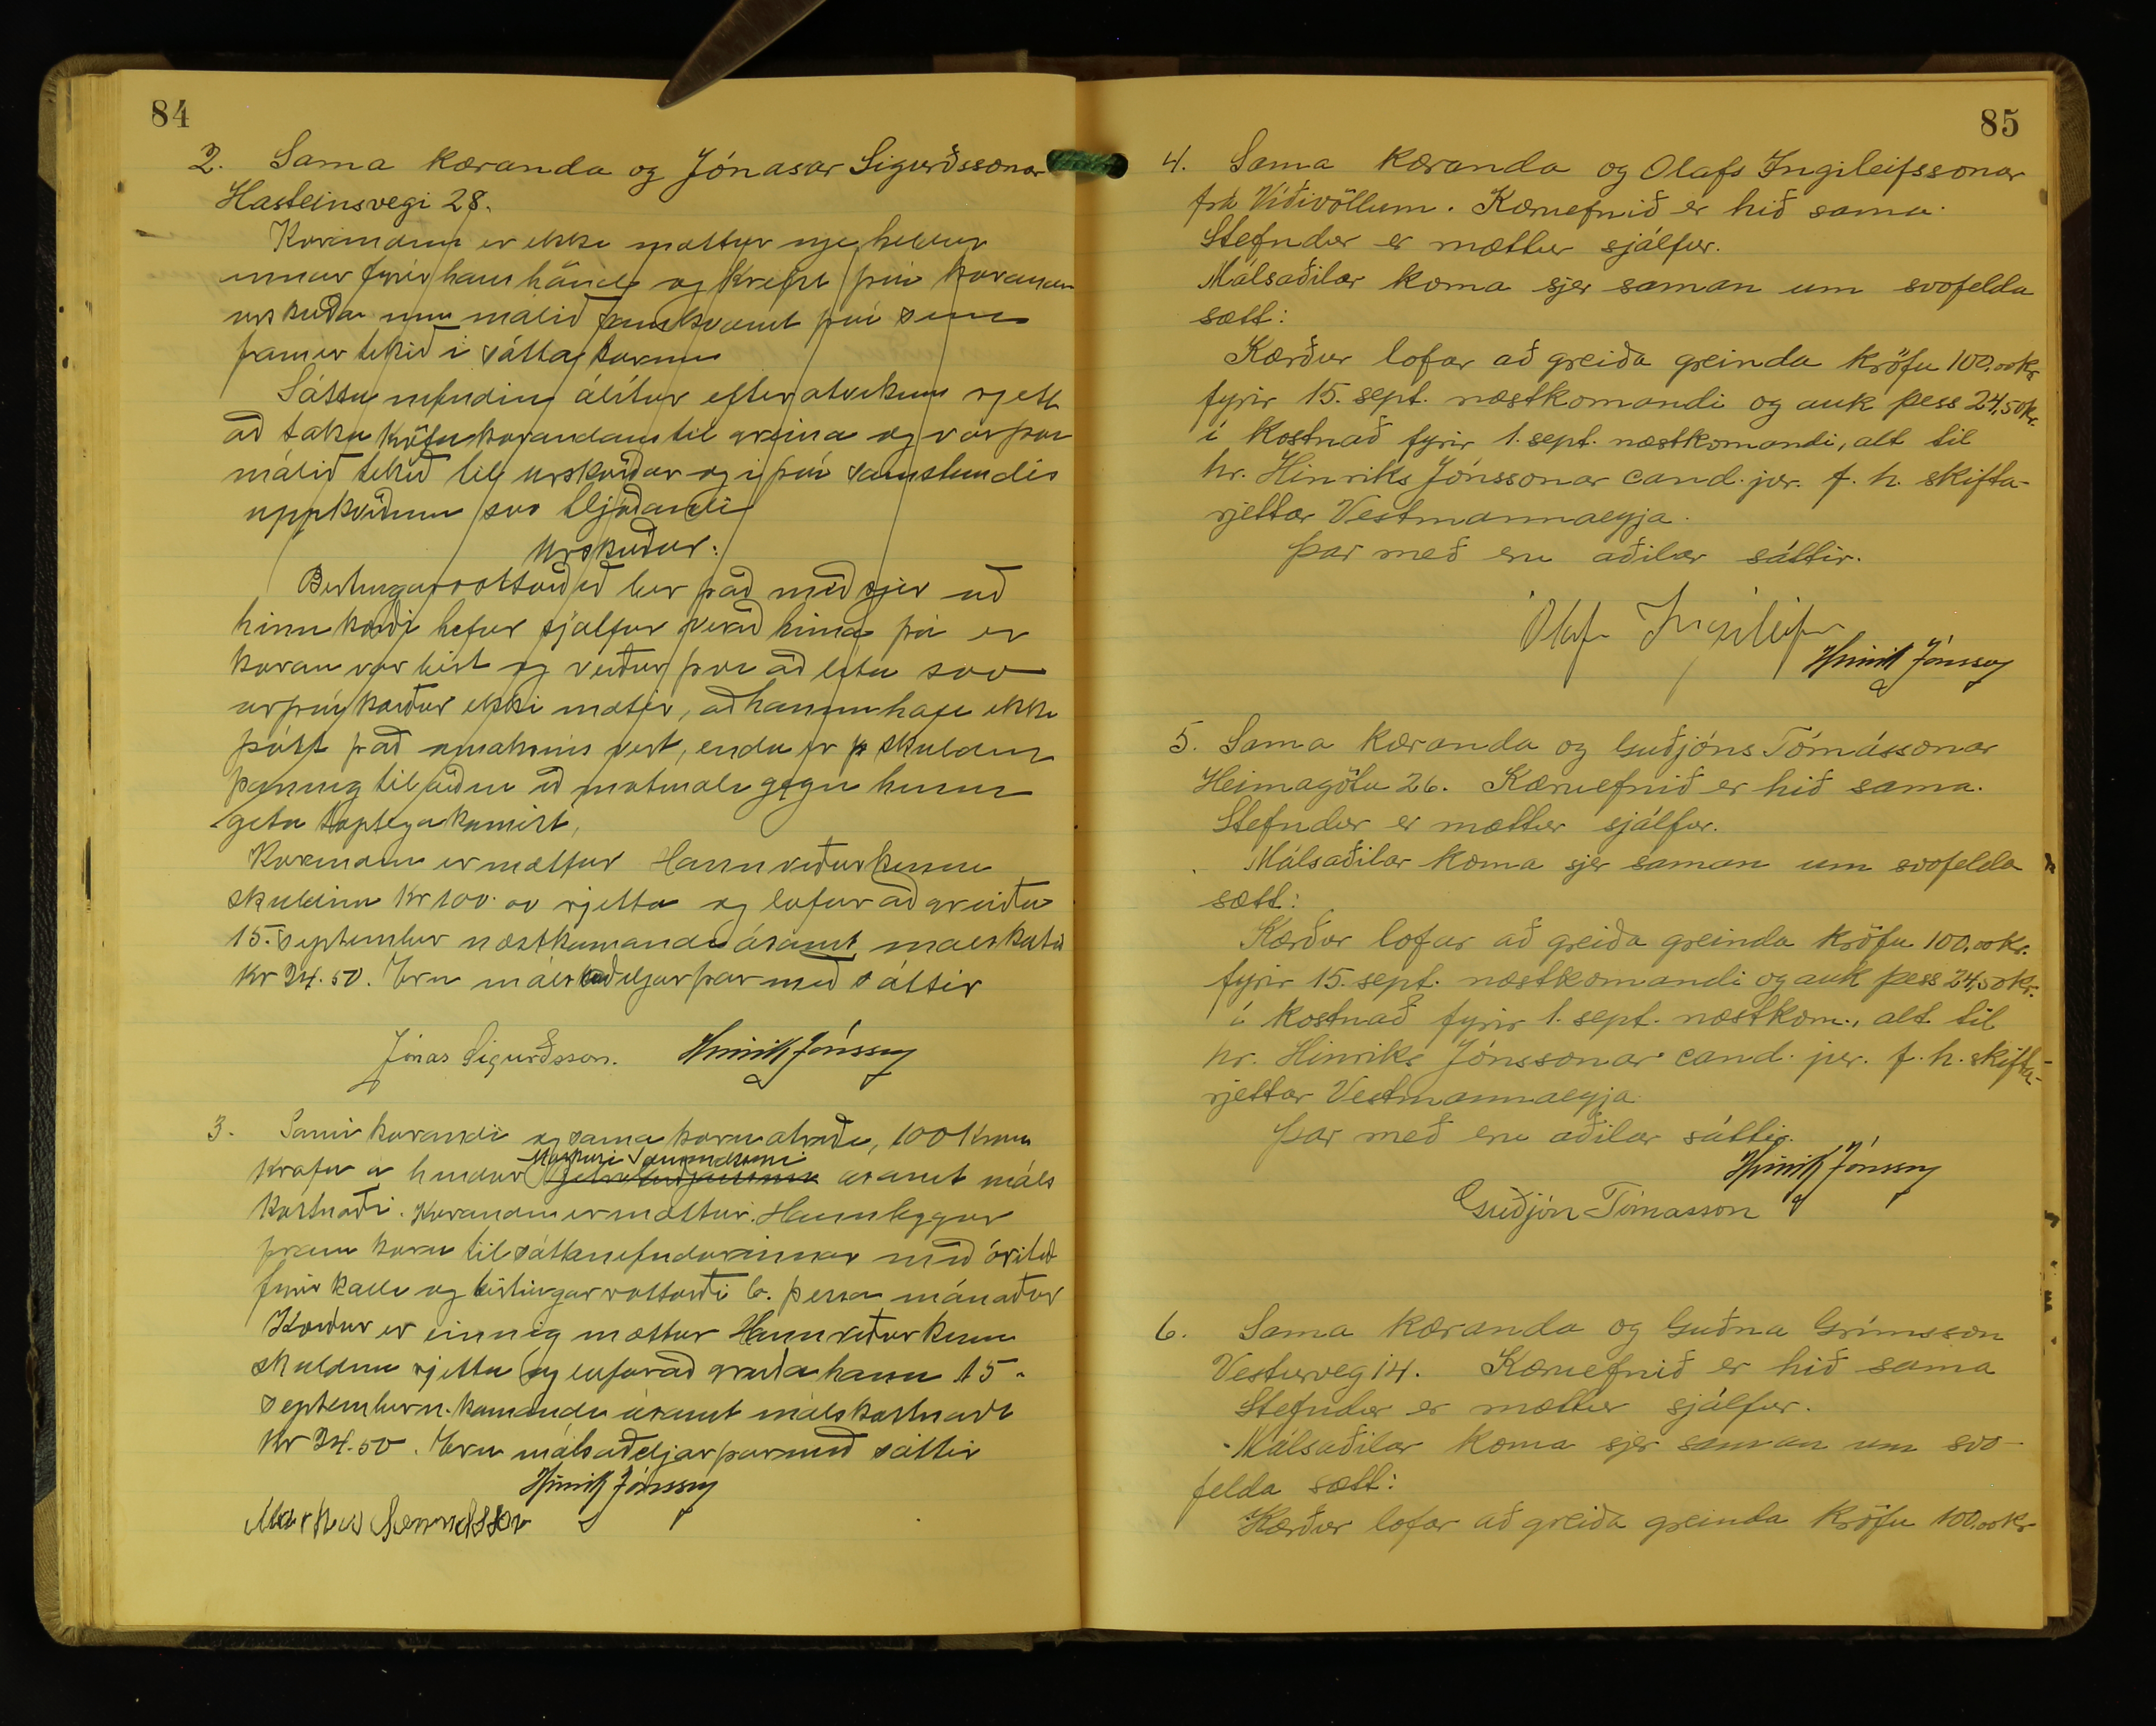 84
2. Sama kæranda og Jónasar Sigurðssonar
Hásteinsvegi 28.
Kærandinn er ekki mættur nje heldur
annar fyrir hans hönd og krefst því kærandinn
úrskurðar um málið samkvæmt því sem
fram er tekið í sáttakærunni
Sáttanefndin álítur eftir atvikum rjett
að taka kröfu kærandans til greina og var þar
málið tekið til úrskurðar og í því samstundis
uppkveðinn svo hljóðandi
Úrskurður:
Birtingarvottorðið ber það með sjer að
hinn kærði hefur sjálfur verið heima þá er
kæran var birt og verður þar að líta svo
úr því kærður ekki mætir, að hann hafi ekki
þótt það ómaksins vert, enda er þ skuldin
þannig til áðu að mótmæli gegn henni
geta tæplega komist,
Kærandinn er mættur Hann viðurkenni
skuldina kr 100.00 rjetta og lofar að greiða
15. september næstkomandi ásamt málskostn
kr 24.50. Eru málsaðiljar þar með sáttir
Jónas Sigurðsson. Hinrik Jónsson
3. Sami kærandi og sama kæruatriði, 100 krónu
Markúsi Sæmundssyni
krafa á hendur ásamt máls
kostnaði. Kærandinn er mættur. Hann leggur
fram kæru til sáttanefndarinnar með árituð
fyrirkalli og birtingarvottorði 6. þessa mánaðar
Kærður er einnig mættur Hann viðurkenn
skuldina rjetta og lofar að greiða hana 15.
september n. komandi ásamt málskostnaði
kr 24.50. Eru málsaðiljar þar með sáttir
Hinrik Jónsson
Markús Sæmundsson
85
4. Sama kæranda og Olafs Ingileifssonar
frá Víðivöllum. Kæruefnið er hið sama.
Stefndur er mættur sjálfur.
Málsaðilar koma sjer saman um svofelda
sætt:
Kærður lofar að greiða greinda kröfu 100,00 kr.
fyrir 15. sept. næstkomandi og auk þess 24,50 kr.
í kostnað fyrir 1. sept. næstkomandi, alt til
hr. Hinriks Jónssonar cand. jur. f. h. skifta-
rjettar Vestmannaeyja.
Þar með eru aðilar sáttir.
Olaf Ingileifss
Hinrik Jónsson
5. Sama kæranda og Guðjóns Tómássonar
Heimagötu 26. Kæruefnið er hið sama.
Stefndur er mættur sjálfur.
Málsaðilar koma sjer saman um svofelda
sætt:
Kærður lofar að greiða greinda kröfu 100,00 kr.
fyrir 15. sept. næstkomandi og auk þess 24,50 kr.
í kostnað fyrir 1. sept. næstkom., alt til
hr. Hinriks Jónssonar cand. jur. f. h. skifta-
rjettar Vestmannaeyja.
Þar með eru aðilar sáttir.
Hinrik Jónsson
Guðjón Tómasson
6. Sama kæranda og Guðna Grímsson
Vesturveg 14. Kæruefnið er hið sama
Stefndur er mættur sjálfur.
Málsaðilar koma sjer saman um svo-
felda sætt:
Kærður lofar að greiða greinda kröfu 100,00 kr